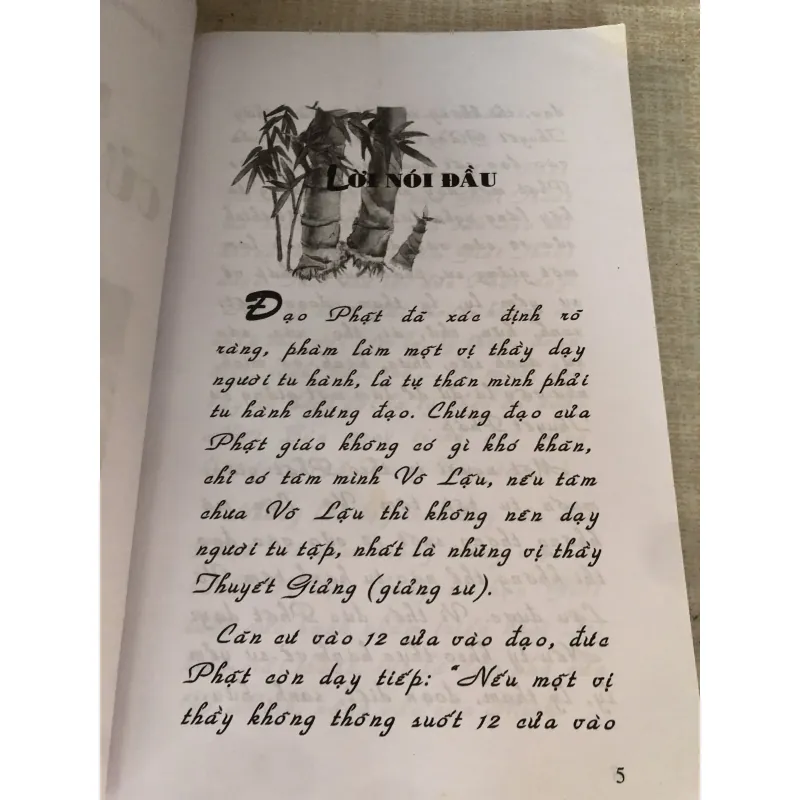 LỜI NÓI ĐẦU
Đạo Phật đã xác định rõ
ràng, phàm làm một vị thầy dạy
người tu hành, là tự thân mình phải
tu hành chứng đạo. Chứng đạo của
Phật giáo không có gì khó khăn,
chỉ có tâm mình Vô Lậu, nếu tâm
chưa Vô Lậu thì không nên dạy
người tu tập, nhất là những vị thầy
Thuyết Giảng (giảng sư).
Căn cứ vào 12 cửa vào đạo, đức
Phật còn dạy tiếp: "Nếu một vị
thầy không thông suốt 12 cửa vào
5